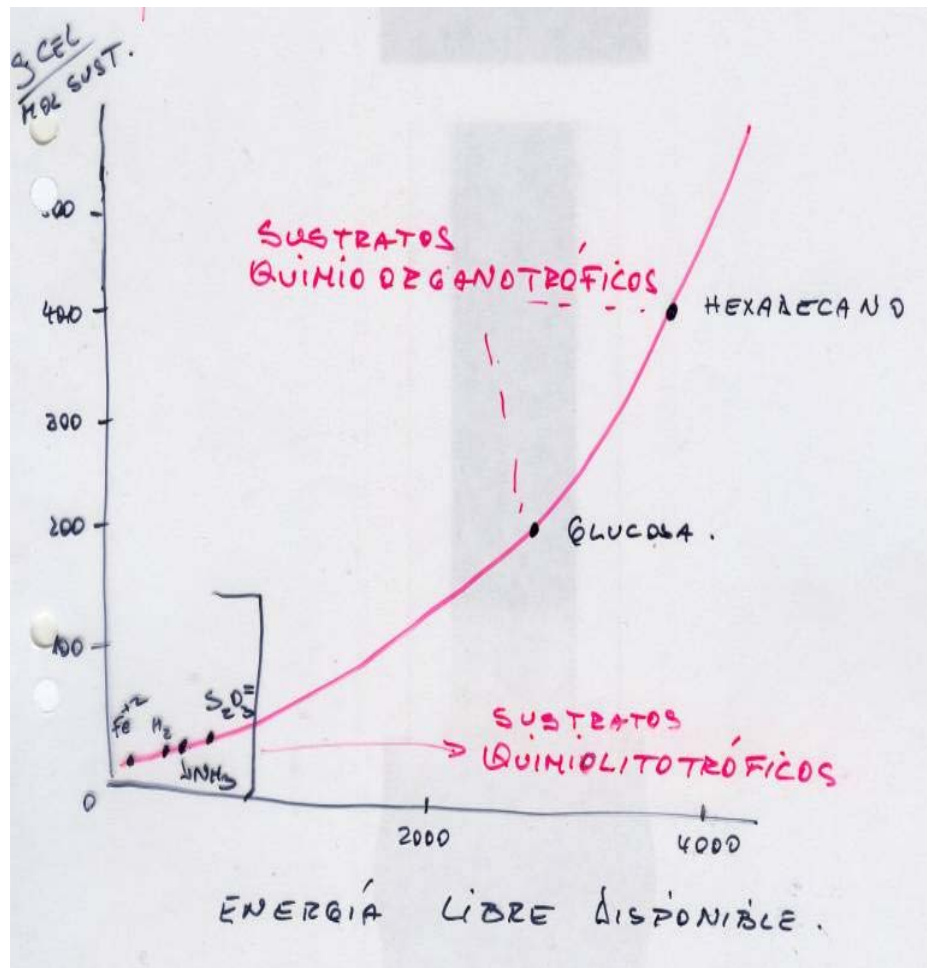 g CEL
MOL SUST.
500
400
SUSTRATOS
QUIMIO ORGANOTRÓFICOS
HEXADECANO
300
200
GLUCOSA.
100
Fe+2
H2
NH3
S2O3=
SUSTRATOS
QUIMIOLITOTRÓFICOS
0
2000
4000
ENERGÍA LIBRE DISPONIBLE.